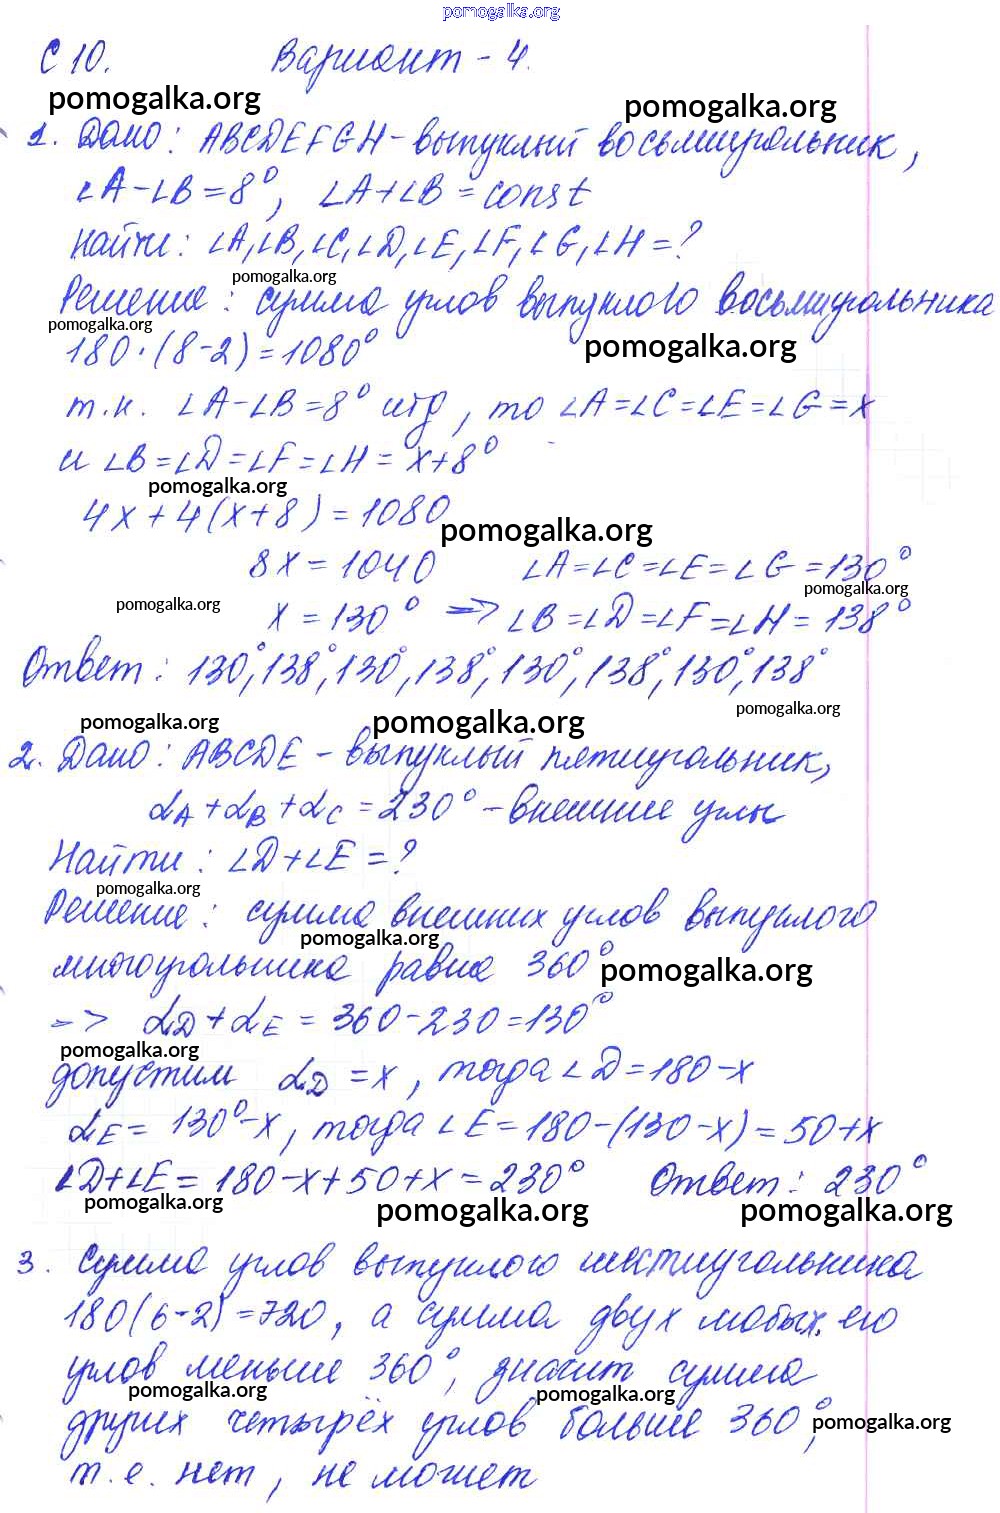 pomogalka.org
С 10. Вариант - 4.
pomogalka.org pomogalka.org
1. Дано: ABCDEFGH - выпуклый восьмиугольник,
∠A-∠B=8°, ∠A+∠B=const
Найти: ∠A,∠B,∠C,∠D,∠E,∠F,∠G,∠H=?
pomogalka.org
Решение: сумма углов выпуклого восьмиугольника
pomogalka.org
180·(8-2)=1080°
pomogalka.org
т.к. ∠A-∠B=8° итд, то ∠A=∠C=∠E=∠G=x
и ∠B=∠D=∠F=∠H=x+8°
pomogalka.org
4x+4(x+8)=1080
pomogalka.org
8x=1040 ∠A=∠C=∠E=∠G=130°
pomogalka.org pomogalka.org
x=130° => ∠B=∠D=∠F=∠H=138°
Ответ: 130°,138°,130°,138°,130°,138°,130°,138°
pomogalka.org pomogalka.org pomogalka.org
2. Дано: ABCDE - выпуклый пятиугольник,
∠A+∠B+∠C=230° - внешние углы
Найти: ∠D+∠E=?
pomogalka.org
Решение: сумма внешних углов выпуклого
pomogalka.org
многоугольника равна 360°
pomogalka.org
=> ∠D+∠E=360-230=130°
pomogalka.org
допустим ∠D=x, тогда ∠D=180-x
∠E=130°-x, тогда ∠E=180-(130-x)=50+x
∠D+∠E=180-x+50+x=230° Ответ: 230°
pomogalka.org pomogalka.org pomogalka.org
3. Сумма углов выпуклого шестиугольника
180(6-2)=720, а сумма двух любых его
углов меньше 360°, значит сумма
pomogalka.org pomogalka.org
других четырёх углов больше 360°,
pomogalka.org
т.е. нет, не может